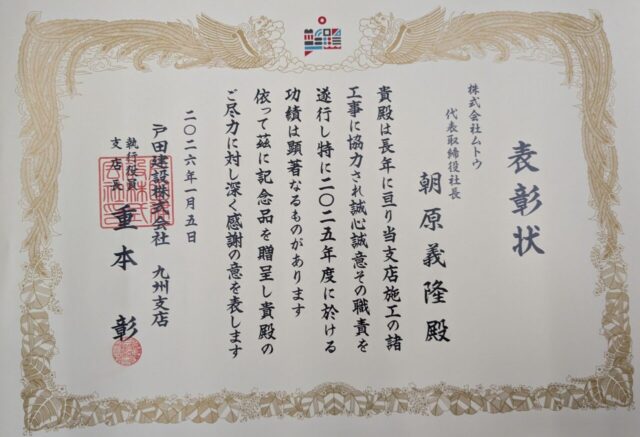 表彰状
株式会社ムトウ
代表取締役社長
朝原義隆殿
貴殿は長年に亘り当支店施工の諸
工事に協力され誠心誠意その職責を
遂行し特に二〇二五年度に於ける
功績は顕著なるものがあります
依って茲に記念品を贈呈し貴殿の
ご尽力に対し深く感謝の意を表します
二〇二六年一月五日
戸田建設株式会社 九州支店
執行役員
支店長
重本 彰